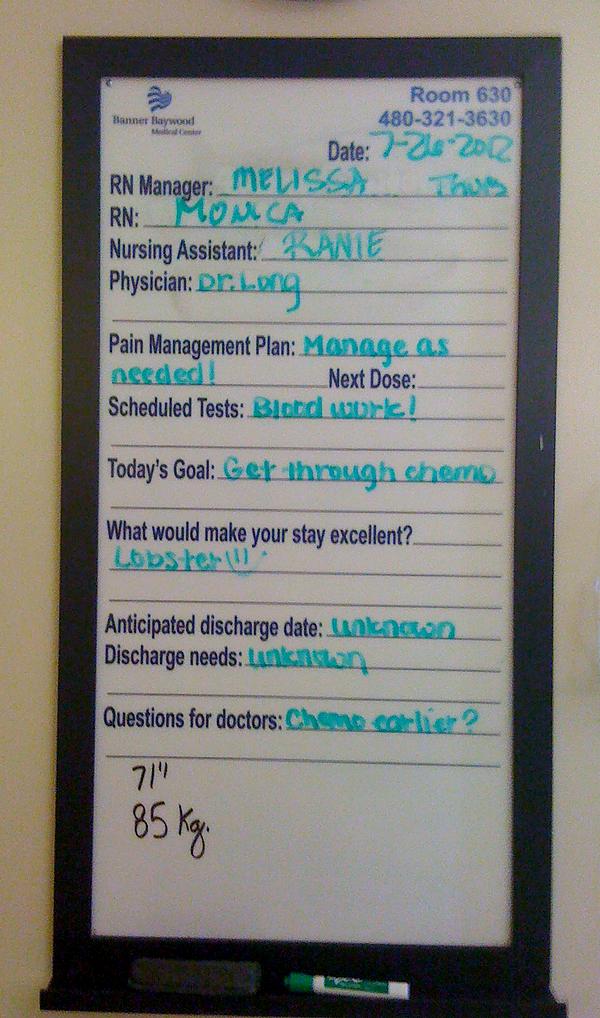 Banner Baywood
Medical Center
Room 630
480-321-3630
Date: 7-26-2012
RN Manager: MELISSA Thurs
RN: MONICA
Nursing Assistant: RANIE
Physician: Dr. Long
Pain Management Plan: Manage as
needed! Next Dose:
Scheduled Tests: Blood work!
Today's Goal: Get through chemo
What would make your stay excellent?
Lobster!!!
Anticipated discharge date: unknown
Discharge needs: unknown
Questions for doctors: Chemo earlier?
71"
85 Kg.